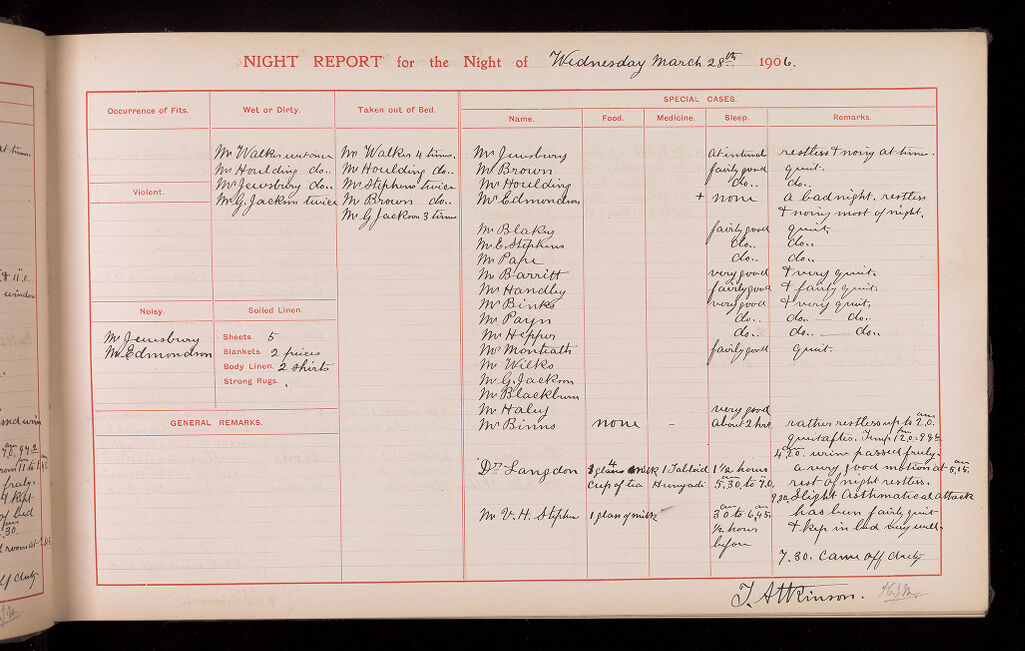 NIGHT REPORT for the Night of Wednesday March 28th 1906.
Occurrence of Fits.
Wet or Dirty.
Taken out of Bed.
SPECIAL CASES.
Name. Food. Medicine. Sleep. Remarks.
Mr Walker wet once
Mr Houlding do..
Mr Jewsbury do..
Mr G. Jackson twice
Mr Walker 4 times.
Mr Houlding do..
Mr Stephens twice
Mr Brown do..
Mr G Jackson 3 times
Violent.
Noisy.
Mr Jewsbury
Mr Edmondson
Soiled Linen.
Sheets. 5
Blankets. 2 pieces
Body Linen. 2 shirts
Strong Rugs.
GENERAL REMARKS.
Mr Jewsbury at intervd restless & noisy at times.
Mr Brown fairly good quiet.
Mr Houlding do.. do..
Mr Edmondson + none a bad night. restless
& noisy most of night.
Mr Blakey fairly good quiet.
Mr E. Stephens do.. do..
Mr Pape do.. do..
Mr Barritt very good & very quiet.
Mr Handley fairly good & fairly quiet.
Mr Binks very good & very quiet.
Mr Payn do.. do.. do..
Mr Hepper do.. do.. do..
Mr Monteath fairly good quiet.
Mr Wilks
Mr G. Jackson
Mr Blackburn
Mr Haley very good
Mr Binns none - about 2 hrs rather restless up to 2.0. am
quiet after. Temp 12.0. 98
4.20. urine passed freely.
Dr Langdon 1 glass milk 1 Tabloid 1½ hours a very good motion at 5.15. am
cup of tea Hunyadi 5.30. to 7.0. am rest of night restless.
9.20. Slight Asthmatical attack
Mr V. H. Stephen 1 glass of milk 3.0 am to 6.45. am has been fairly quiet
½ hours & kep in bed very well.
before
7.30. Came off duty
T. Atkinson.